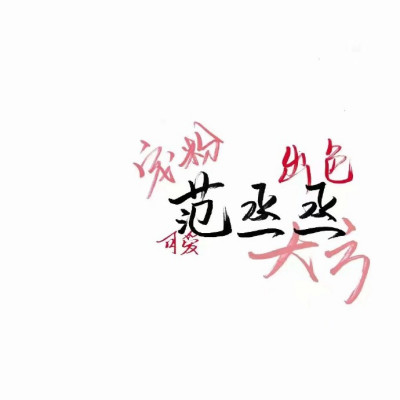 宠粉
出色
范丞丞
可爱
大方